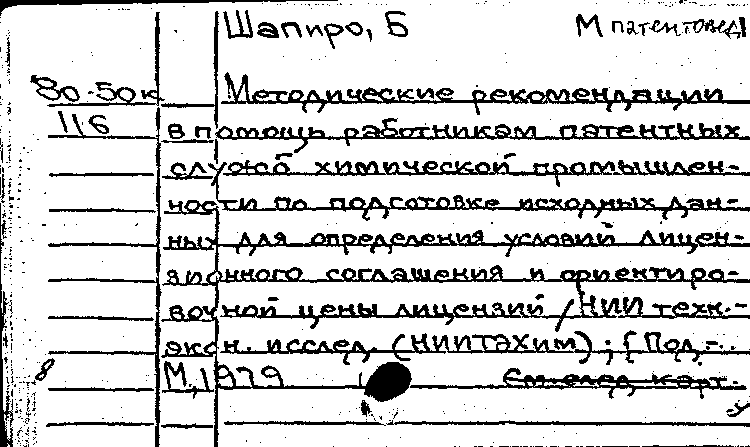 Шапиро, Б М патентовед
80-50к Методические рекомендации
116 в помощь работникам патентных
служб химической промышлен-
ности по подготовке исходных дан-
ных для определения условий лицен-
зионного соглашения и ориентиро-
вочной цены лицензий /НИИ техн.-
экон. исслед. (НИИТЭхим) ; [Под-
8 М., 1979 См. след. карт.